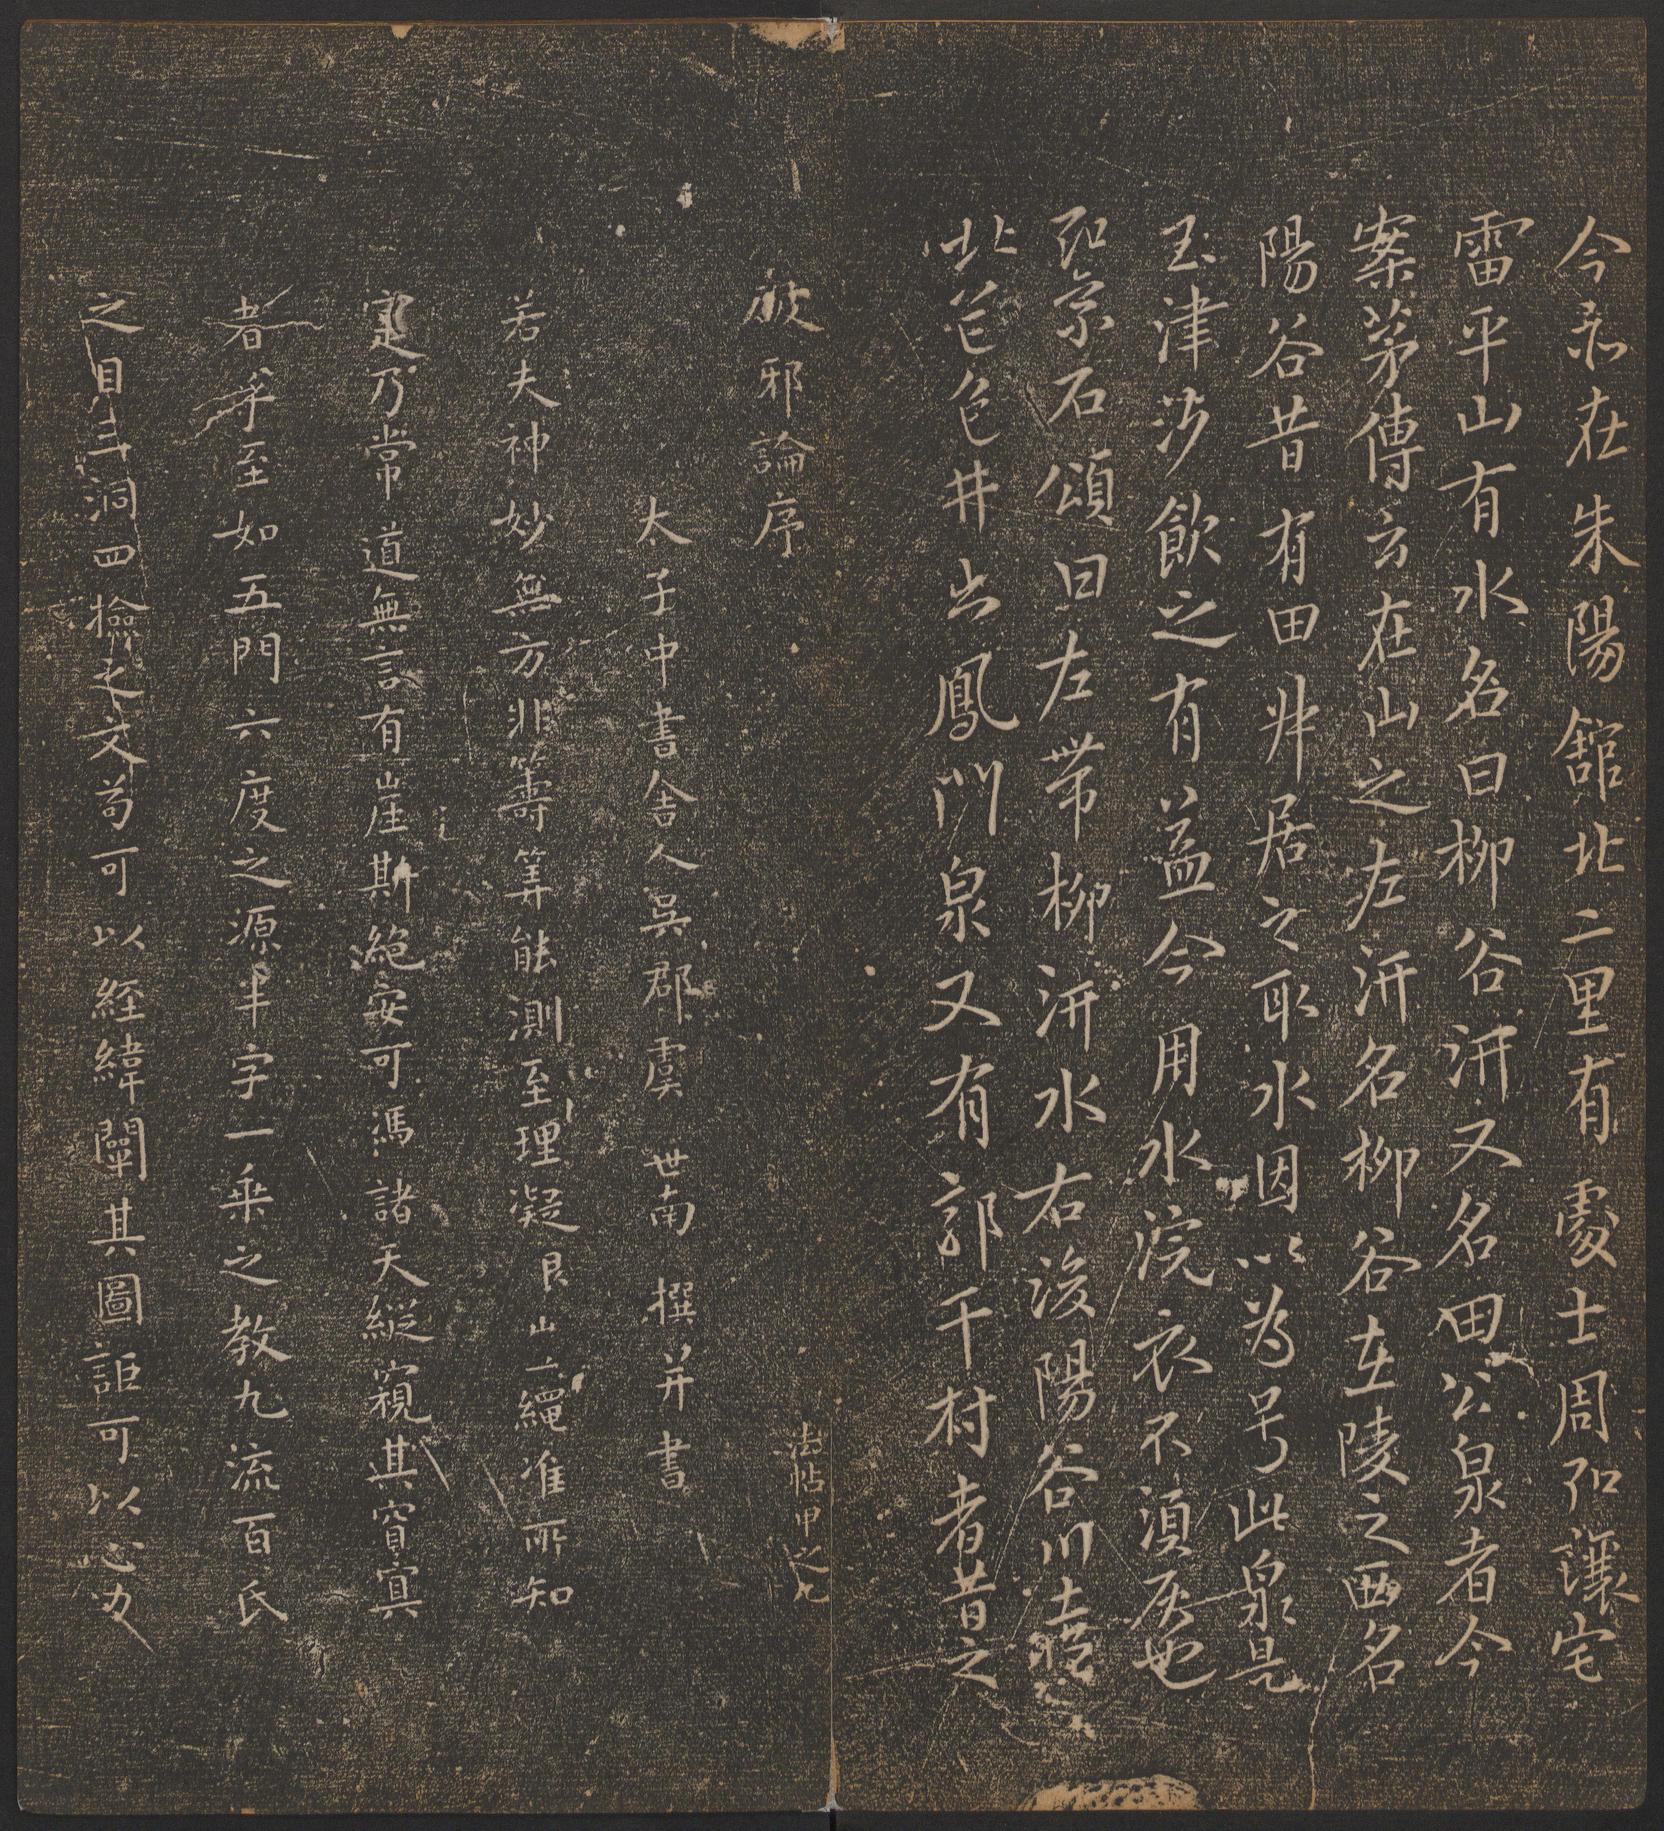 今亦在朱陽舘北二里有處士周弘讓宅
雷平山有水名曰柳谷汧又名田公泉者今
案茅傳云在山之左汧名柳谷在陵之西名
陽谷昔有田叔居之取水因以為号此泉是
玉津沙飲之有益今用水浣衣不湏灰也
弘景石頌曰左帶柳汧水右浚陽谷川
此芒色井出鳳門泉又有郭千村者昔之
破邪論序
太子中書舍人吳郡虞世南撰并書
若夫神妙無方非籌筭能測至理凝邈豈繩准所知
寔乃常道無言有崖斯絕安可馮諸天縱窺其窅冥
者乎至如五門六度之源半字一乘之教九流百氏
之目三洞四檢之文苟可以經緯闡其圖詎可以心力
法帖甲之九